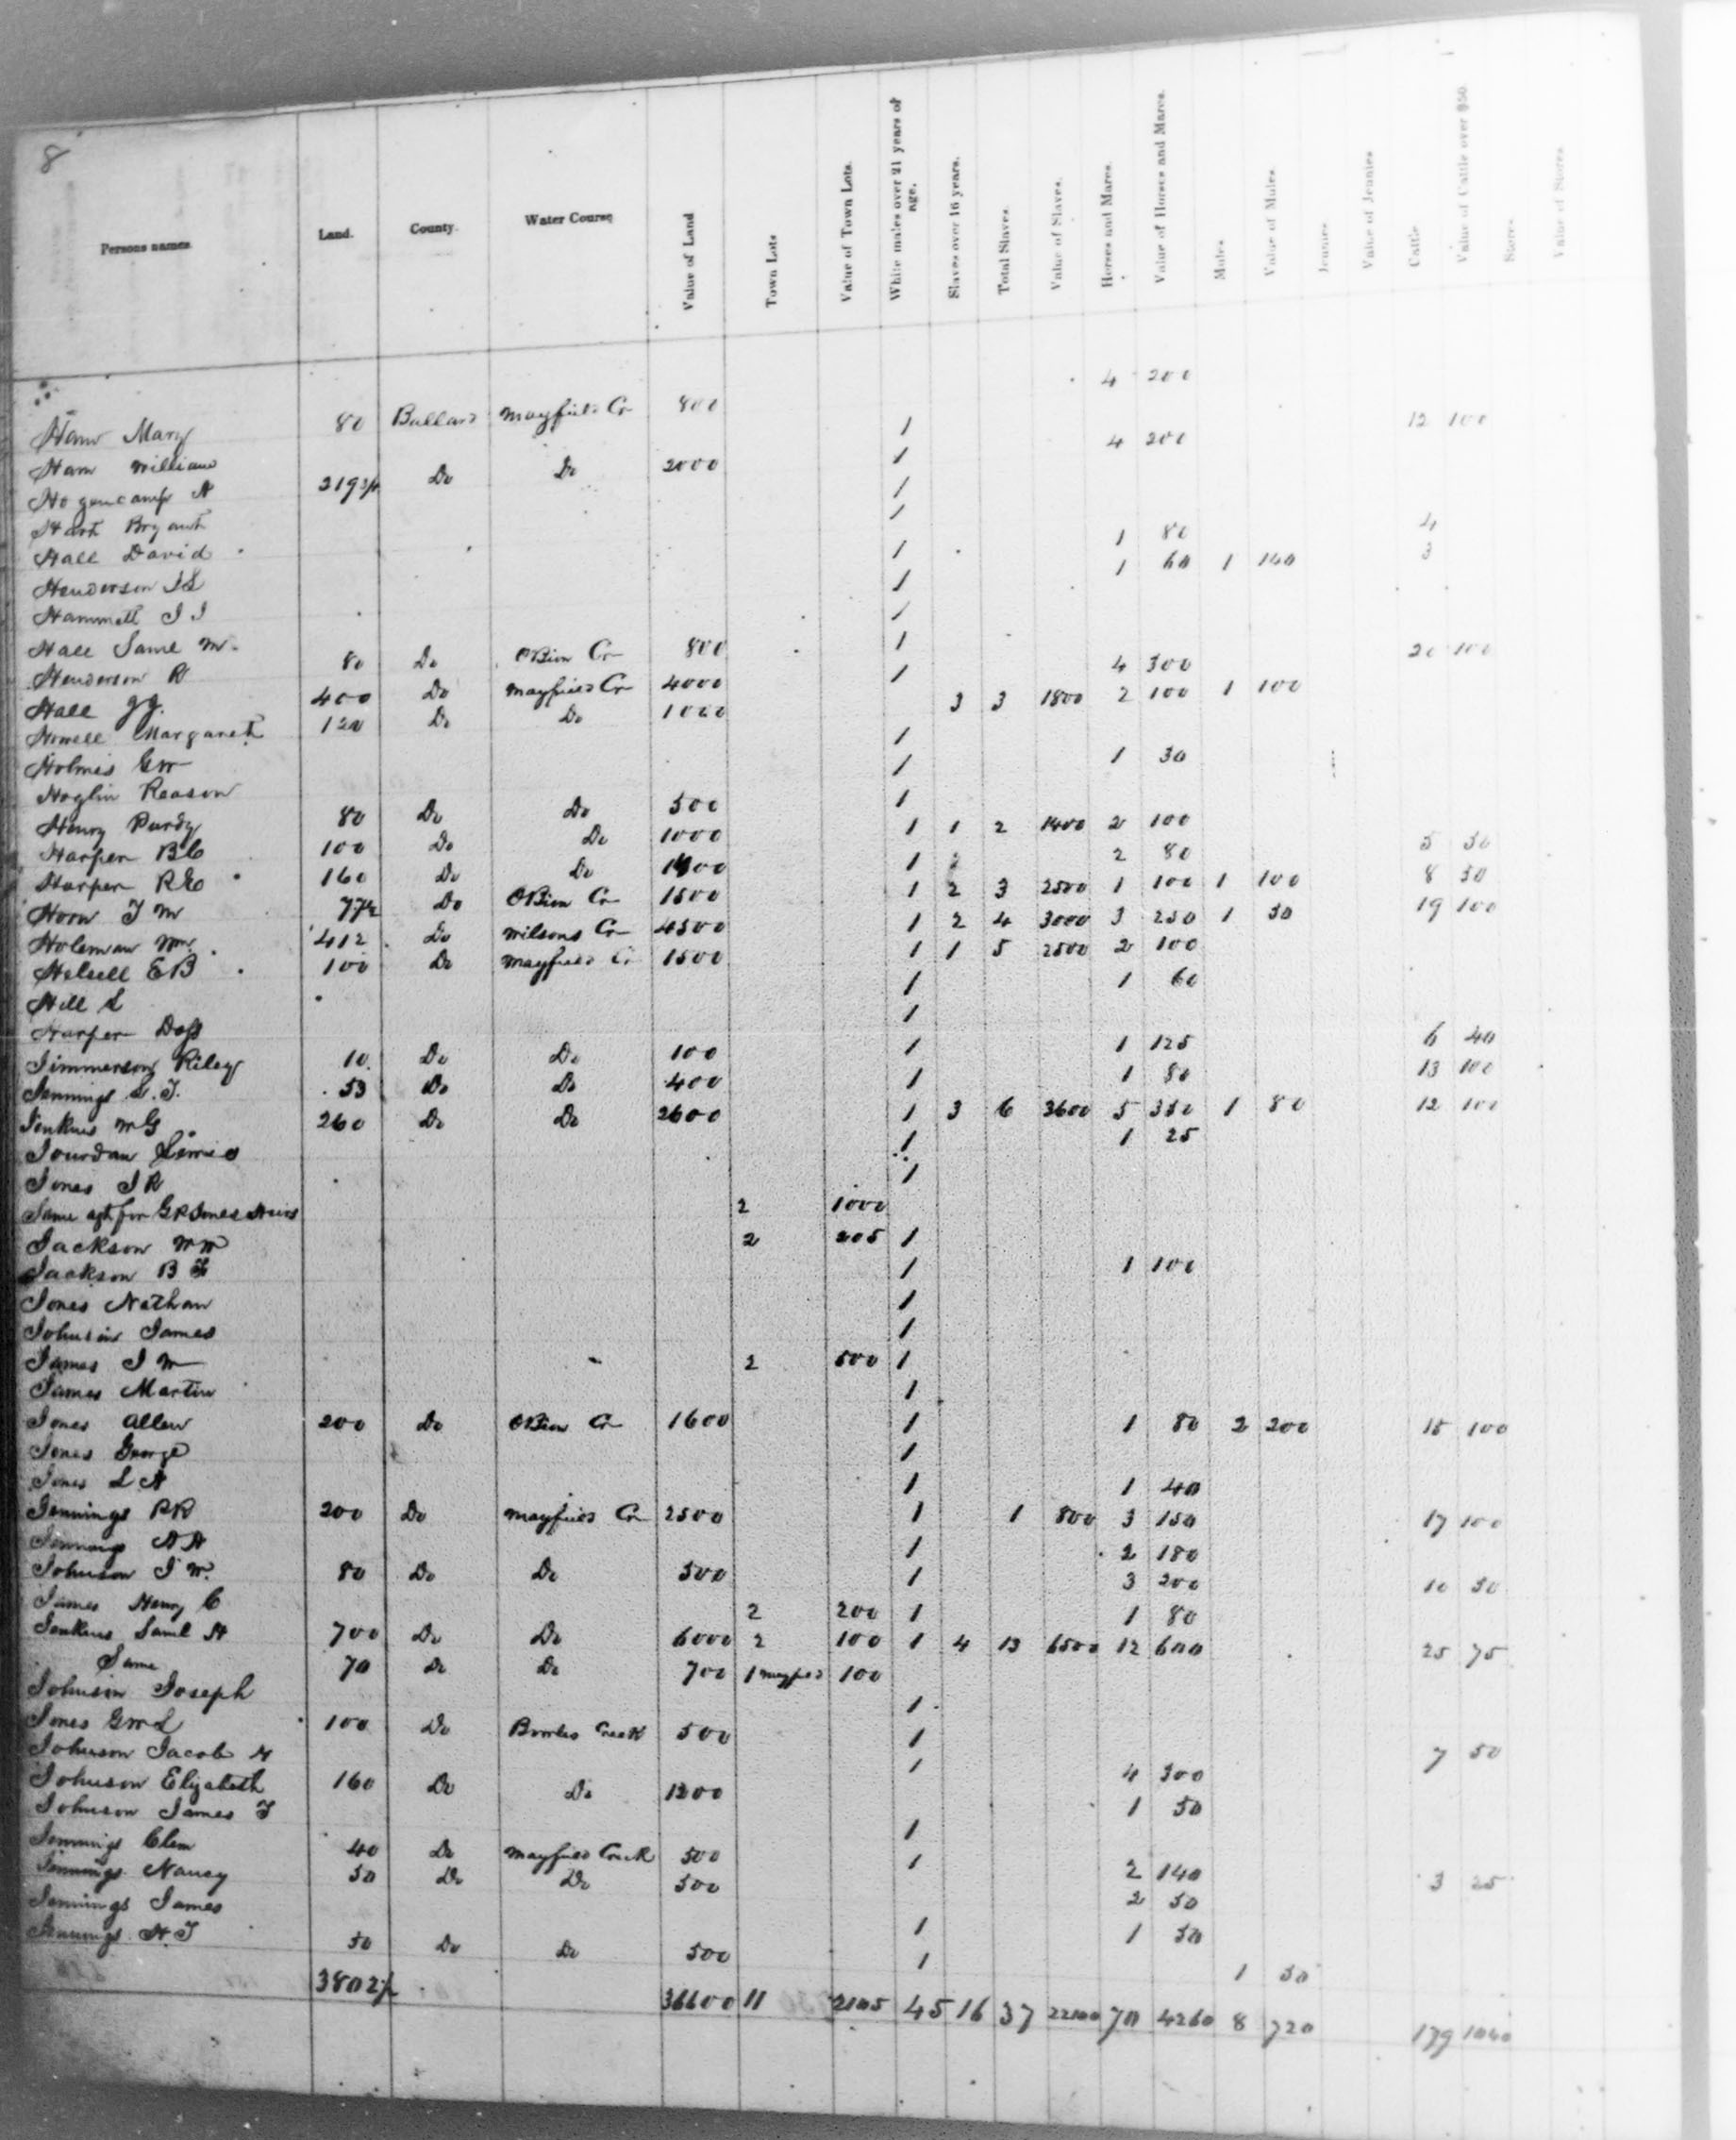 8
Persons names. Land. County. Water Course Value of Land Town Lots Value of Town Lots. White males over 21 years of age. Slaves over 16 years. Total Slaves. Value of Slaves. Horses and Mares. Value of Horses and Mares. Mules Value of Mules. Jennies Value of Jennies Cattle Value of Cattle over $50. Stores Value of Stores
Ham Mary 80 Ballard Mayfield Cr 800 4 200
Ham William 1 12 100
Hogencamp A 219 3/4 Do Do 2000 1 4 200
Hart Bryant 1
Hall David 1
Henderson J L 1 1 80 4
Hammett J J 1 1 60 1 140 3
Hall Saml M. 1
Henderson R 80 Do OBion Cr 800 1
Hall J J. 400 Do Mayfield Cr 4000 1 4 300 20 100
Howell Margaret 120 Do Do 1000 3 3 1800 2 100 1 100
Holmes G W 1
Hoglin Reason 1 1 30
Henry Purdy 80 Do Do 500 1
Harper B C 100 Do Do 1000 1 1 2 1400 2 100
Harper R E 160 Do Do 1400 1 2 80 5 50
Horn J M 77 1/2 Do OBion Cr 1500 1 2 3 2500 1 100 1 100 8 50
Holeman Wm. 412 Do Wilsons Cr 4500 1 2 4 3000 3 250 1 50 19 100
Helsell E B 100 Do Mayfield Cr 1500 1 1 5 2500 2 100
Hill L 1 1 60
Harper Doss 1
Jimmerson Riley 10 Do Do 100 1 1 125 6 40
Jennings L. J. 53 Do Do 400 1 1 80 13 100
Jenkins M G 260 Do Do 2600 1 3 6 3600 5 350 1 80 12 100
Jourdan 1 1 25
Jones J R 1
Same agt for G R Jones Heirs 2 1000
Jackson W W 2 205 1
Jackson B F 1 1 100
Jones Nathan 1
Johnson James 1
James J W 2 500 1
James Martin 1
Jones Allen 200 Do OBion Cr 1600 1 1 80 2 200 15 100
Jones George 1
Jones L A 1 1 40
Jennings R R 200 Do Mayfield Cr 2500 1 1 800 3 150 17 100
Jennings A A 1 2 180
Johnson J W. 80 Do Do 500 1 3 200 10 50
James Henry C 2 200 1 1 80
Jenkins Saml H 700 Do Do 6000 2 100 1 4 13 6500 12 600 25 75
Same 70 Do Do 700 1 Mayfield 100
Johnson Joseph 1
Jones G W L 100 Do Bowles Creek 500 1
Johnson Jacob 1 4 300 7 50
Johnson Elizabeth 160 Do Do 1200 1 50
Johnson James F 1
Jennings Clem 40 Do Mayfield Creek 500 1 2 140
Jennings Nancy 50 Do Do 500 2 50 3 25
Jennings James 1 1 50
Jennings H J 50 Do Do 500 1 1 50
3802 1/2 36600 11 2105 45 16 37 22100 70 4260 8 720 179 1040